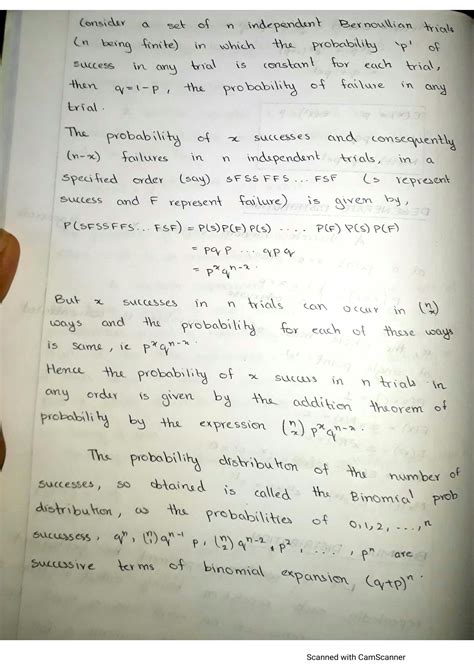 Consider a set of n independent Bernoullian trials
(n being finite) in which the probability 'p' of
success in any trial is constant for each trial,
then q=1-p, the probability of failure in any
trial.
The probability of x successes and consequently
(n-x) failures in n independent trials, in a
specified order (say) SFSSFFS...FSF (S represent
success and F represent failure) is given by,
P(SFSSFFS...FSF) = P(S)P(F)P(S) .... P(F) P(S) P(F)
= pqp ... qpq
= p^x q^{n-x}.
But x successes in n trials can occur in (n x)
ways and the probability for each of these ways
is same, ie p^x q^{n-x}.
Hence the probability of x success in n trials in
any order is given by the addition theorem of
probability by the expression (n x) p^x q^{n-x}.
The probability distribution of the number of
successes, so obtained is called the Binomial prob
distribution, as the probabilities of 0,1,2,...,n
q^n, (n 1) q^{n-1} p, (n 2) q^{n-2}, p^2, ...., p^n are
successive terms of binomial expansion, (q+p)^n.
Scanned with CamScanner